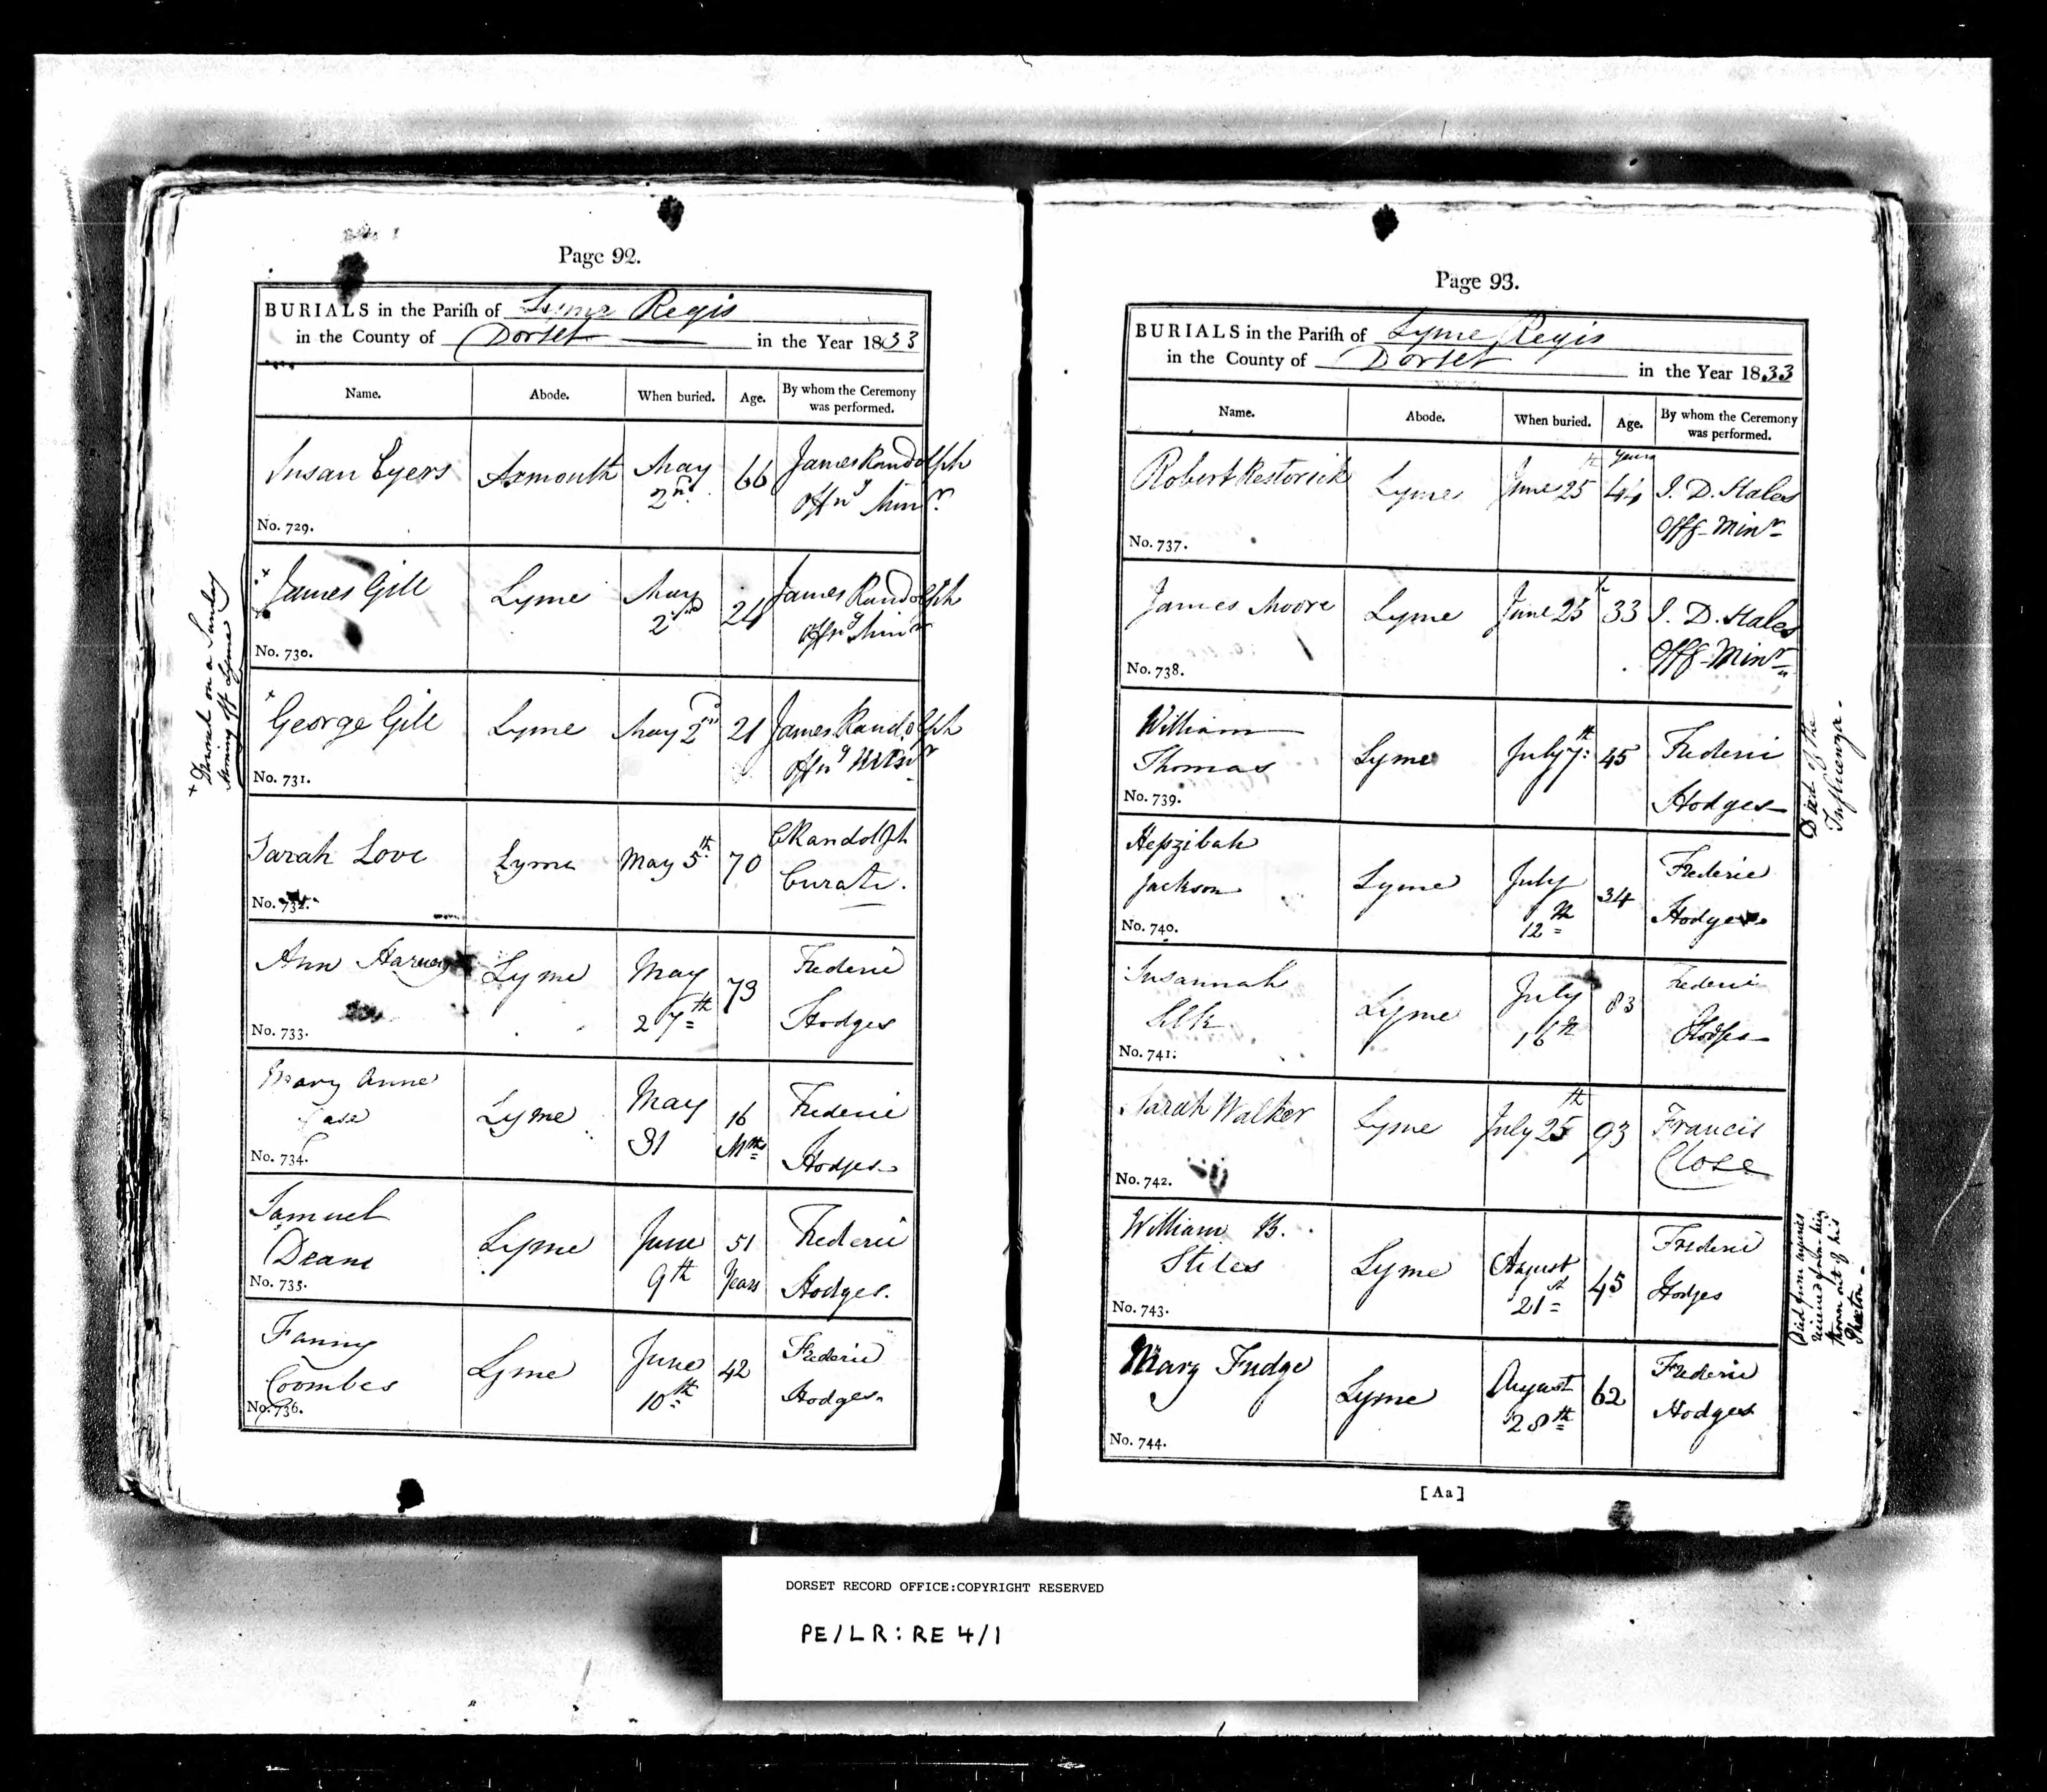 Page 92.
BURIALS in the Parish of Lyme Regis
in the County of Dorset in the Year 1833
Name. Abode. When buried. Age. By whom the Ceremony was performed.
Susan Eyers Axmouth May 2nd. 66 James Randolph Offg Minr.
No. 729.
+ James Gill Lyme May 2nd 24 James Randolph Offg Minr
No. 730.
+ George Gill Lyme May 2nd 21 James Randolph Offg Minr
No. 731.
+ Drowned on a Sunday
Morning off Lyme
Sarah Love Lyme May 5th. 70 C Randolph Curate.
No. 732.
Ann Harvey Lyme May 27th 73 Frederic Hodges
No. 733.
Mary Anne Lyme May 31 16 Mths Frederic Hodges
No. 734.
Samuel Deane Lyme June 9th 51 Years Frederic Hodges.
No. 735.
Fanny Coombes Lyme June 10th 42 Frederic Hodges.
No. 736.
Page 93.
BURIALS in the Parish of Lyme Regis
in the County of Dorset in the Year 1833
Name. Abode. When buried. Age. By whom the Ceremony was performed.
Robert Restorick Lyme June 25th 44 Years J. D. Hales Off-Minr
No. 737.
James Moore Lyme June 25th 33 J. D. Hales Off-Minr
No. 738.
William Thomas Lyme July 7th: 45 Frederic Hodges
No. 739.
Died of the
Influenza.
Hepzibah Jackson Lyme July 12th 34 Frederic Hodges
No. 740.
Susannah Silk Lyme July 16th 83 Frederic Hodges
No. 741.
Sarah Walker Lyme July 25th 93 Francis Close
No. 742.
William B. Stiles Lyme August 21st 45 Frederic Hodges
No. 743.
Died from injuries
received from being
thrown out of his
Phaeton.
Mary Fudge Lyme August 28th 62 Frederic Hodges
No. 744.
[Aa]
DORSET RECORD OFFICE:COPYRIGHT RESERVED
PE/LR:RE 4/1